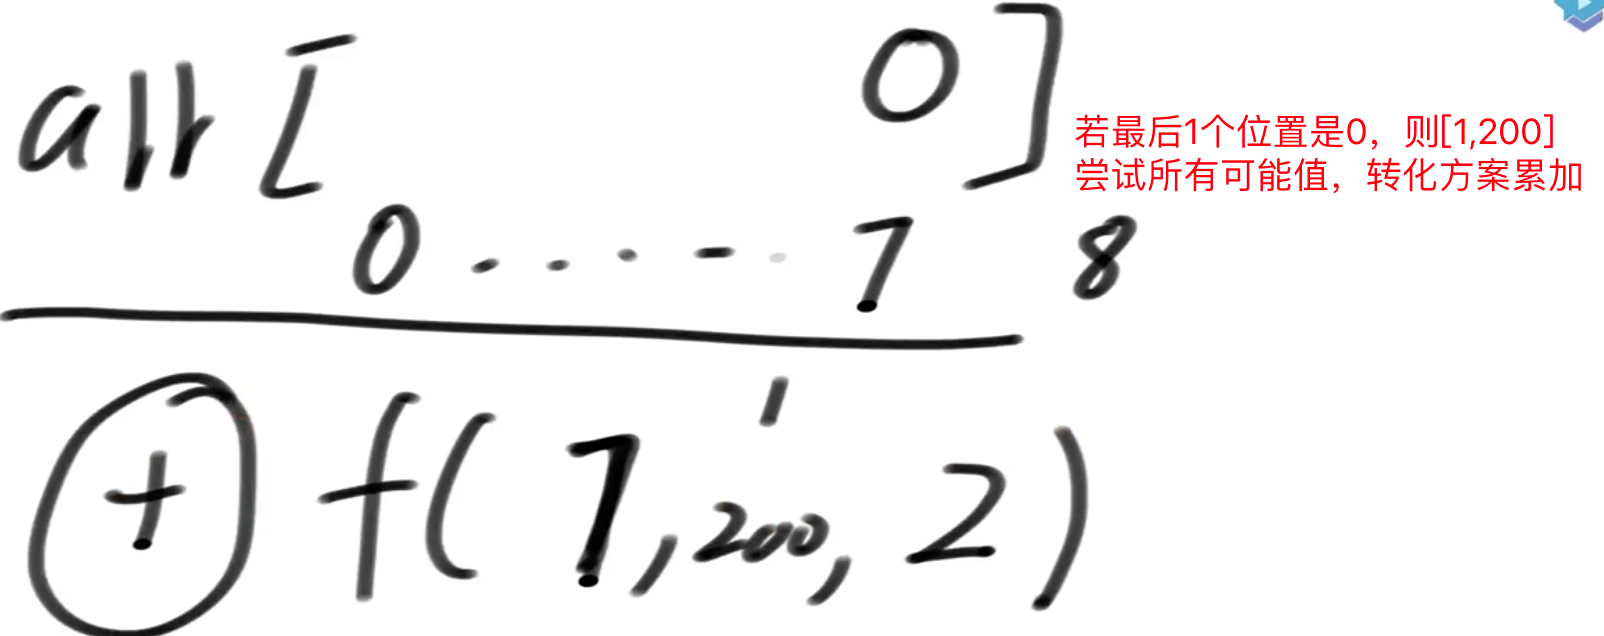 arr [ 0 ]
若最后1个位置是0，则[1,200]
尝试所有可能值，转化方案累加
0 ..... 7 8
+ f( 7, 200, 2 )